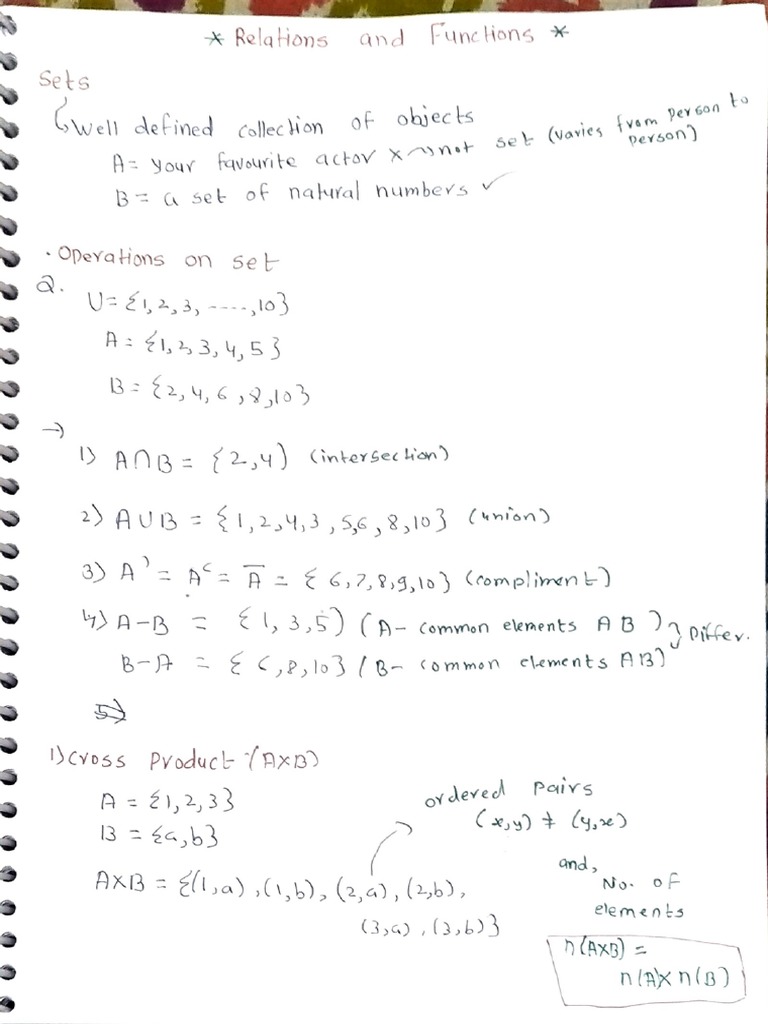 * Relations and Functions *
Sets
↳ Well defined collection of objects
A = your favourite actor × ⇝ not set (varies from person to person)
B = a set of natural numbers ✓
• Operations on set
Q.
U = {1, 2, 3, ----, 10}
A = {1, 2, 3, 4, 5}
B = {2, 4, 6, 8, 10}
→
1) A∩B = {2, 4) (intersection)
2) A∪B = {1, 2, 4, 3, 5, 6, 8, 10} (union)
3) A' = Aᶜ = A̅ = {6, 7, 8, 9, 10} (compliment)
4) A-B = {1, 3, 5) (A- common elements A B) } Differ.
B-A = {6, 8, 10} (B- common elements AB)
1) Cross Product : (A×B)
A = {1, 2, 3}
B = {a, b}
A×B = {(1,a), (1,b), (2,a), (2,b),
(3,a), (3,b)}
ordered pairs
(x,y) ≠ (y,x)
and,
No. of
elements
n(A×B) =
n(A)× n(B)